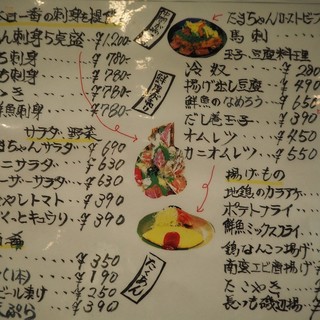 一番の刺身を提
ん刺身5点盛 ¥1,200-
刺身 ¥780-
刺 ¥780-
き ¥780-
鮮魚刺身 ¥780-
サラダ、野菜
ちゃんサラダ ¥690
ニサラダ ¥630
ーザーサラダ ¥630
やしトマト ¥390
くっとキュウリ ¥390
¥350
(1本) ¥190
ビール漬け ¥250
ぷら ¥390
たくあん
たまちゃんローストビーフ
馬刺
玉子、豆腐料理
冷奴 ¥280
揚げ出し豆腐 ¥490
鮮魚のなめろう ¥650
だし巻玉子 ¥390
オムレツ ¥450
カニオムレツ ¥550
揚げもの
地鶏のカラアゲ
ポテトフライ
鮮魚ミックスフライ
鶏なんこつ揚げ
南蛮エビ唐揚げ
たこやき
長いも磯辺揚